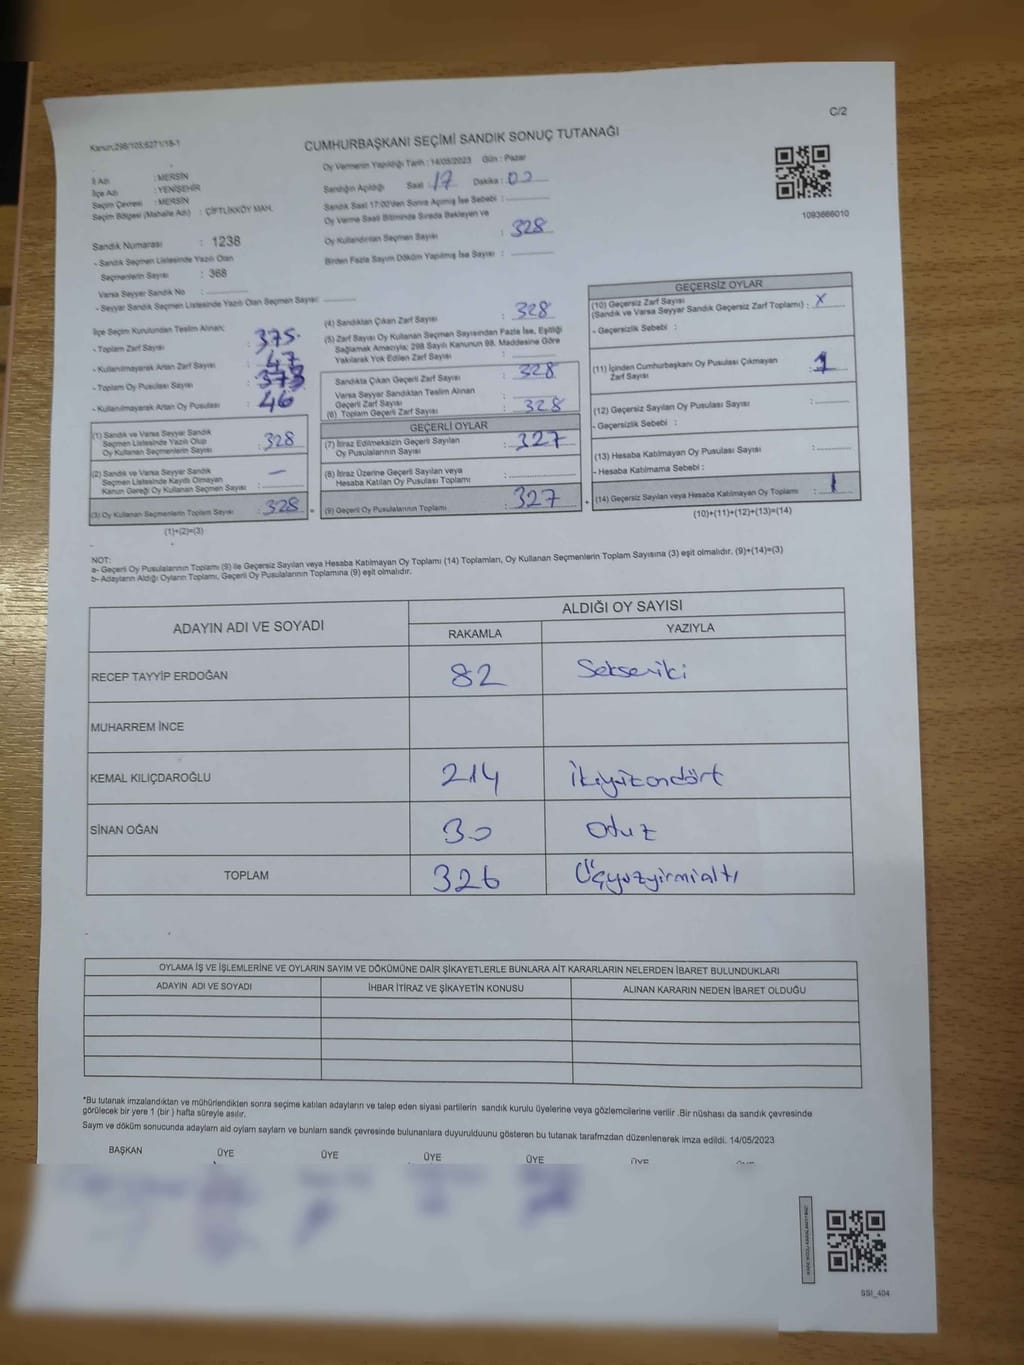 C/2
Kanun;298/105;6271/18-1
CUMHURBAŞKANI SEÇİMİ SANDIK SONUÇ TUTANAĞI
Oy Vermenin Yapıldığı Tarih : 14/05/2023 Gün : Pazar
İl Adı : MERSİN
İlçe Adı : YENİŞEHİR
Seçim Çevresi : MERSİN
Seçim Bölgesi (Mahalle Adı) : ÇİFTLİKKÖY MAH.
Sandığın Açıldığı Saat : 17 Dakika : 00
Sandık Saat 17:00'den Sonra Açılmış İse Sebebi :
Oy Verme Saati Bitiminde Sırada Bekleyen ve
Oy Kullandırılan Seçmen Sayısı : 328
Birden Fazla Sayım Döküm Yapılmış İse Sayısı :
1093666010
Sandık Numarası : 1238
- Sandık Seçmen Listesinde Yazılı Olan
Seçmenlerin Sayısı : 368
Varsa Seyyar Sandık No :
- Seyyar Sandık Seçmen Listesinde Yazılı Olan Seçmen Sayısı:
İlçe Seçim Kurulundan Teslim Alınan;
- Toplam Zarf Sayısı : 375
- Kullanılmayarak Artan Zarf Sayısı : 47
- Toplam Oy Pusulası Sayısı : 373
- Kullanılmayarak Artan Oy Pusulası : 46
(1) Sandık ve Varsa Seyyar Sandık
Seçmen Listesinde Yazılı Olup
Oy Kullanan Seçmenlerin Sayısı : 328
(2) Sandık ve Varsa Seyyar Sandık
Seçmen Listesinde Kayıtlı Olmayan
Kanun Gereği Oy Kullanan Seçmen Sayısı : —
(3) Oy Kullanan Seçmenlerin Toplam Sayısı : 328
(1)+(2)=(3)
(4) Sandıktan Çıkan Zarf Sayısı : 328
(5) Zarf Sayısı Oy Kullanan Seçmen Sayısından Fazla İse, Eşitliği
Sağlamak Amacıyla; 298 Sayılı Kanunun 98. Maddesine Göre
Yakılarak Yok Edilen Zarf Sayısı :
Sandıkta Çıkan Geçerli Zarf Sayısı : 328
Varsa Seyyar Sandıktan Teslim Alınan
Geçerli Zarf Sayısı :
(6) Toplam Geçerli Zarf Sayısı : 328
GEÇERLİ OYLAR
(7) İtiraz Edilmeksizin Geçerli Sayılan
Oy Pusulalarının Sayısı : 327
(8) İtiraz Üzerine Geçerli Sayılan veya
Hesaba Katılan Oy Pusulası Toplamı :
(9) Geçerli Oy Pusulalarının Toplamı : 327
GEÇERSİZ OYLAR
(10) Geçersiz Zarf Sayısı
(Sandık ve Varsa Seyyar Sandık Geçersiz Zarf Toplamı) : X
- Geçersizlik Sebebi :
(11) İçinden Cumhurbaşkanı Oy Pusulası Çıkmayan
Zarf Sayısı : 1
(12) Geçersiz Sayılan Oy Pusulası Sayısı :
- Geçersizlik Sebebi :
(13) Hesaba Katılmayan Oy Pusulası Sayısı :
- Hesaba Katılmama Sebebi :
(14) Geçersiz Sayılan veya Hesaba Katılmayan Oy Toplamı : 1
(10)+(11)+(12)+(13)=(14)
NOT:
a- Geçerli Oy Pusulalarının Toplamı (9) ile Geçersiz Sayılan veya Hesaba Katılmayan Oy Toplamı (14) Toplamları, Oy Kullanan Seçmenlerin Toplam Sayısına (3) eşit olmalıdır. (9)+(14)=(3)
b- Adayların Aldığı Oyların Toplamı, Geçerli Oy Pusulalarının Toplamına (9) eşit olmalıdır.
ADAYIN ADI VE SOYADI ALDIĞI OY SAYISI
RAKAMLA YAZIYLA
RECEP TAYYİP ERDOĞAN 82 Sekseniki
MUHARREM İNCE
KEMAL KILIÇDAROĞLU 214 İkiyüzondört
SİNAN OĞAN 30 Oduz
TOPLAM 326 Üçyüzyirmialtı
OYLAMA İŞ VE İŞLEMLERİNE VE OYLARIN SAYIM VE DÖKÜMÜNE DAİR ŞİKAYETLERLE BUNLARA AİT KARARLARIN NELERDEN İBARET BULUNDUKLARI
ADAYIN ADI VE SOYADI İHBAR İTİRAZ VE ŞİKAYETİN KONUSU ALINAN KARARIN NEDEN İBARET OLDUĞU
*Bu tutanak imzalandıktan ve mühürlendikten sonra seçime katılan adayların ve talep eden siyasi partilerin sandık kurulu üyelerine veya gözlemcilerine verilir .Bir nüshası da sandık çevresinde
görülecek bir yere 1 (bir ) hafta süreyle asılır.
Sayım ve döküm sonucunda adayların aldı oyların sayıları ve bunların sandk çevresinde bulunanlara duyurulduunu gösteren bu tutanak tarafmzdan düzenlenerek imza edildi. 14/05/2023
BAŞKAN ÜYE ÜYE ÜYE ÜYE ÜYE
SSI_404